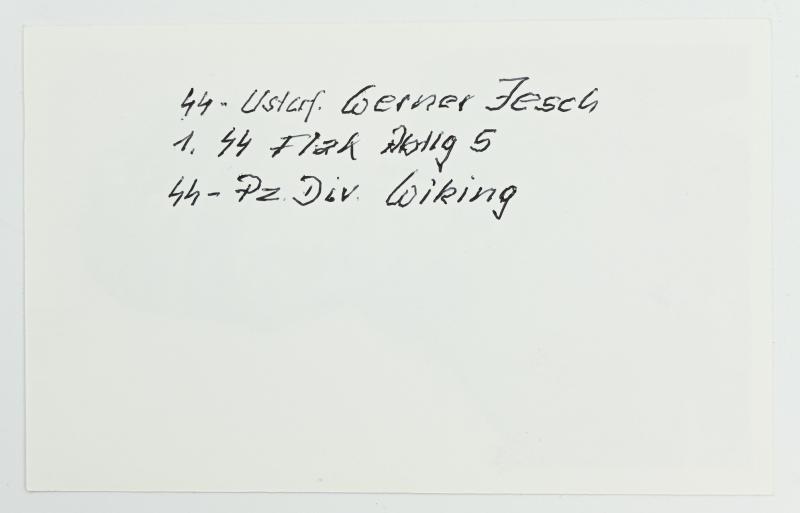 SS-Ustuf. Werner Jesch
1. SS Flak Abtlg 5
SS-Pz. Div. Wiking